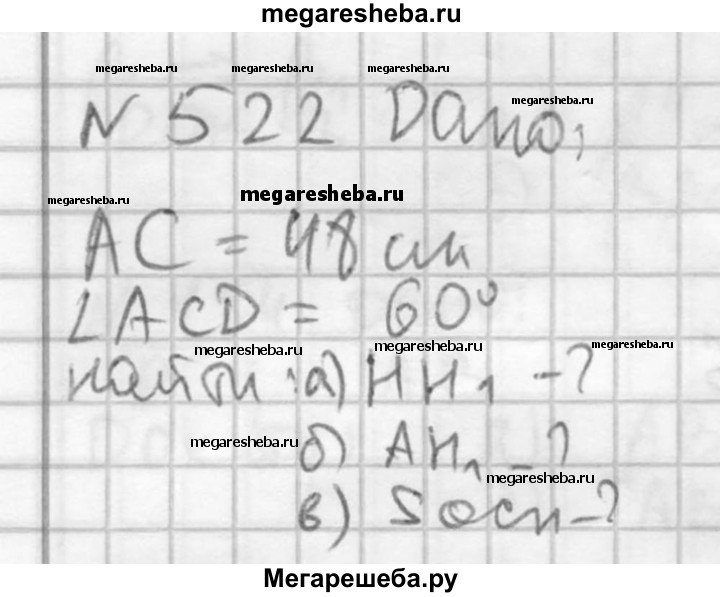 megaresheba.ru
megaresheba.ru megaresheba.ru megaresheba.ru
N 522 Дано,
megaresheba.ru
megaresheba.ru megaresheba.ru
AC = 48 см
∠ACD = 60°
megaresheba.ru megaresheba.ru megaresheba.ru
найти: а) HH₁ - ?
megaresheba.ru б) AH₁ - ?
megaresheba.ru
в) Sосн - ?
Мегарешеба.ру